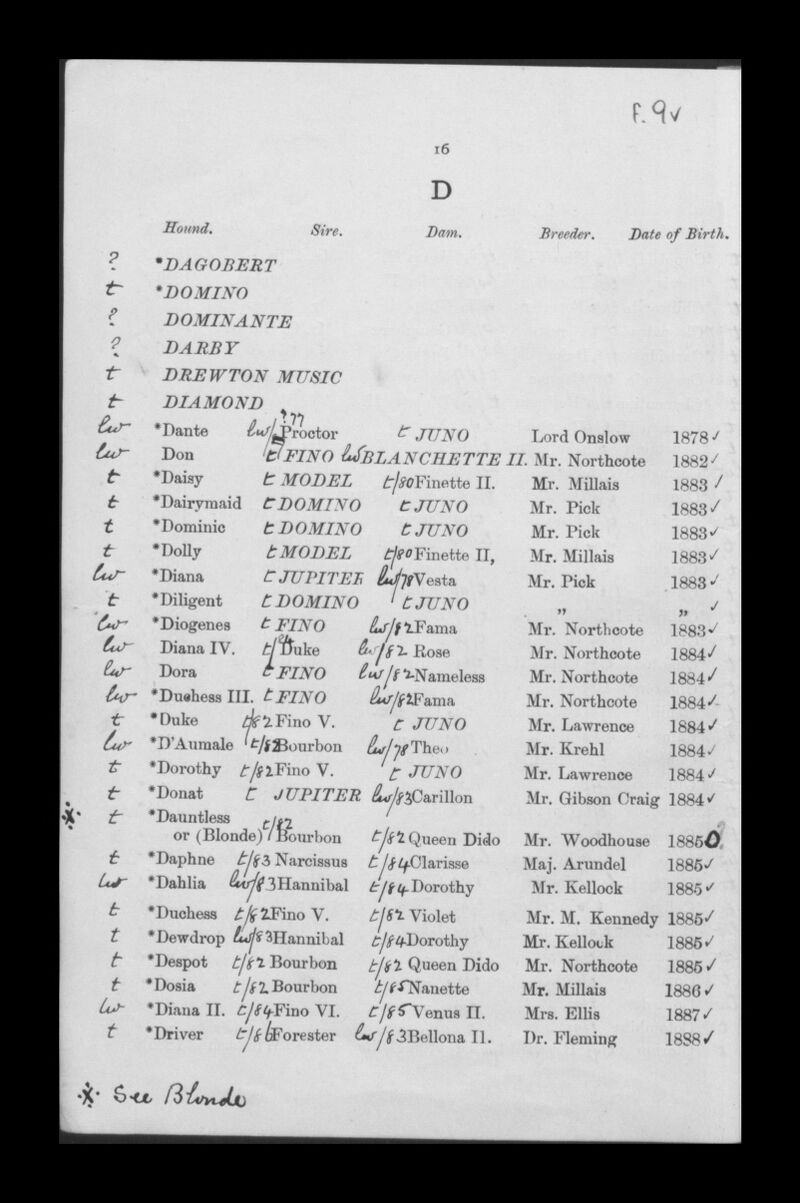 F. 9v
16
D
Hound. Sire. Dam. Breeder. Date of Birth.
? *DAGOBERT
t *DOMINO
? DOMINANTE
? DARBY
t DREWTON MUSIC
t DIAMOND
lw *Dante lw/?77 Proctor t JUNO Lord Onslow 1878 ✓
lw Don t FINO lw BLANCHETTE II. Mr. Northcote 1882 ✓
t *Daisy t MODEL t/80 Finette II. Mr. Millais 1883 ✓
t *Dairymaid t DOMINO t JUNO Mr. Pick 1883 ✓
t *Dominic t DOMINO t JUNO Mr. Pick 1883 ✓
t *Dolly t MODEL t/80 Finette II, Mr. Millais 1883 ✓
lw *Diana t JUPITER lw/78 Vesta Mr. Pick 1883 ✓
t *Diligent t DOMINO t JUNO „ „ ✓
lw *Diogenes t FINO lw/82 Fama Mr. Northcote 1883 ✓
lw Diana IV. t/ Duke lw/82 Rose Mr. Northcote 1884 ✓
lw Dora t FINO lw/82 Nameless Mr. Northcote 1884 ✓
lw *Duchess III. t FINO lw/82 Fama Mr. Northcote 1884 ✓
t *Duke t/82 Fino V. t JUNO Mr. Lawrence 1884 ✓
lw *D'Aumale t/82 Bourbon lw/78 Theo Mr. Krehl 1884 ✓
t *Dorothy t/82 Fino V. t JUNO Mr. Lawrence 1884 ✓
t *Donat t JUPITER lw/83 Carillon Mr. Gibson Craig 1884 ✓
※ t *Dauntless
or (Blonde) t/82 Bourbon t/82 Queen Dido Mr. Woodhouse 1885 0
t *Daphne t/83 Narcissus t/84 Clarisse Maj. Arundel 1885 ✓
lw *Dahlia lw/83 Hannibal t/84 Dorothy Mr. Kellock 1885 ✓
t *Duchess t/82 Fino V. t/82 Violet Mr. M. Kennedy 1885 ✓
t *Dewdrop lw/83 Hannibal t/84 Dorothy Mr. Kellock 1885 ✓
t *Despot t/82 Bourbon t/82 Queen Dido Mr. Northcote 1885 ✓
t *Dosia t/82 Bourbon t/85 Nanette Mr. Millais 1886 ✓
lw *Diana II. t/84 Fino VI. t/85 Venus II. Mrs. Ellis 1887 ✓
t *Driver t/86 Forester lw/83 Bellona II. Dr. Fleming 1888 ✓
※ See Blonde